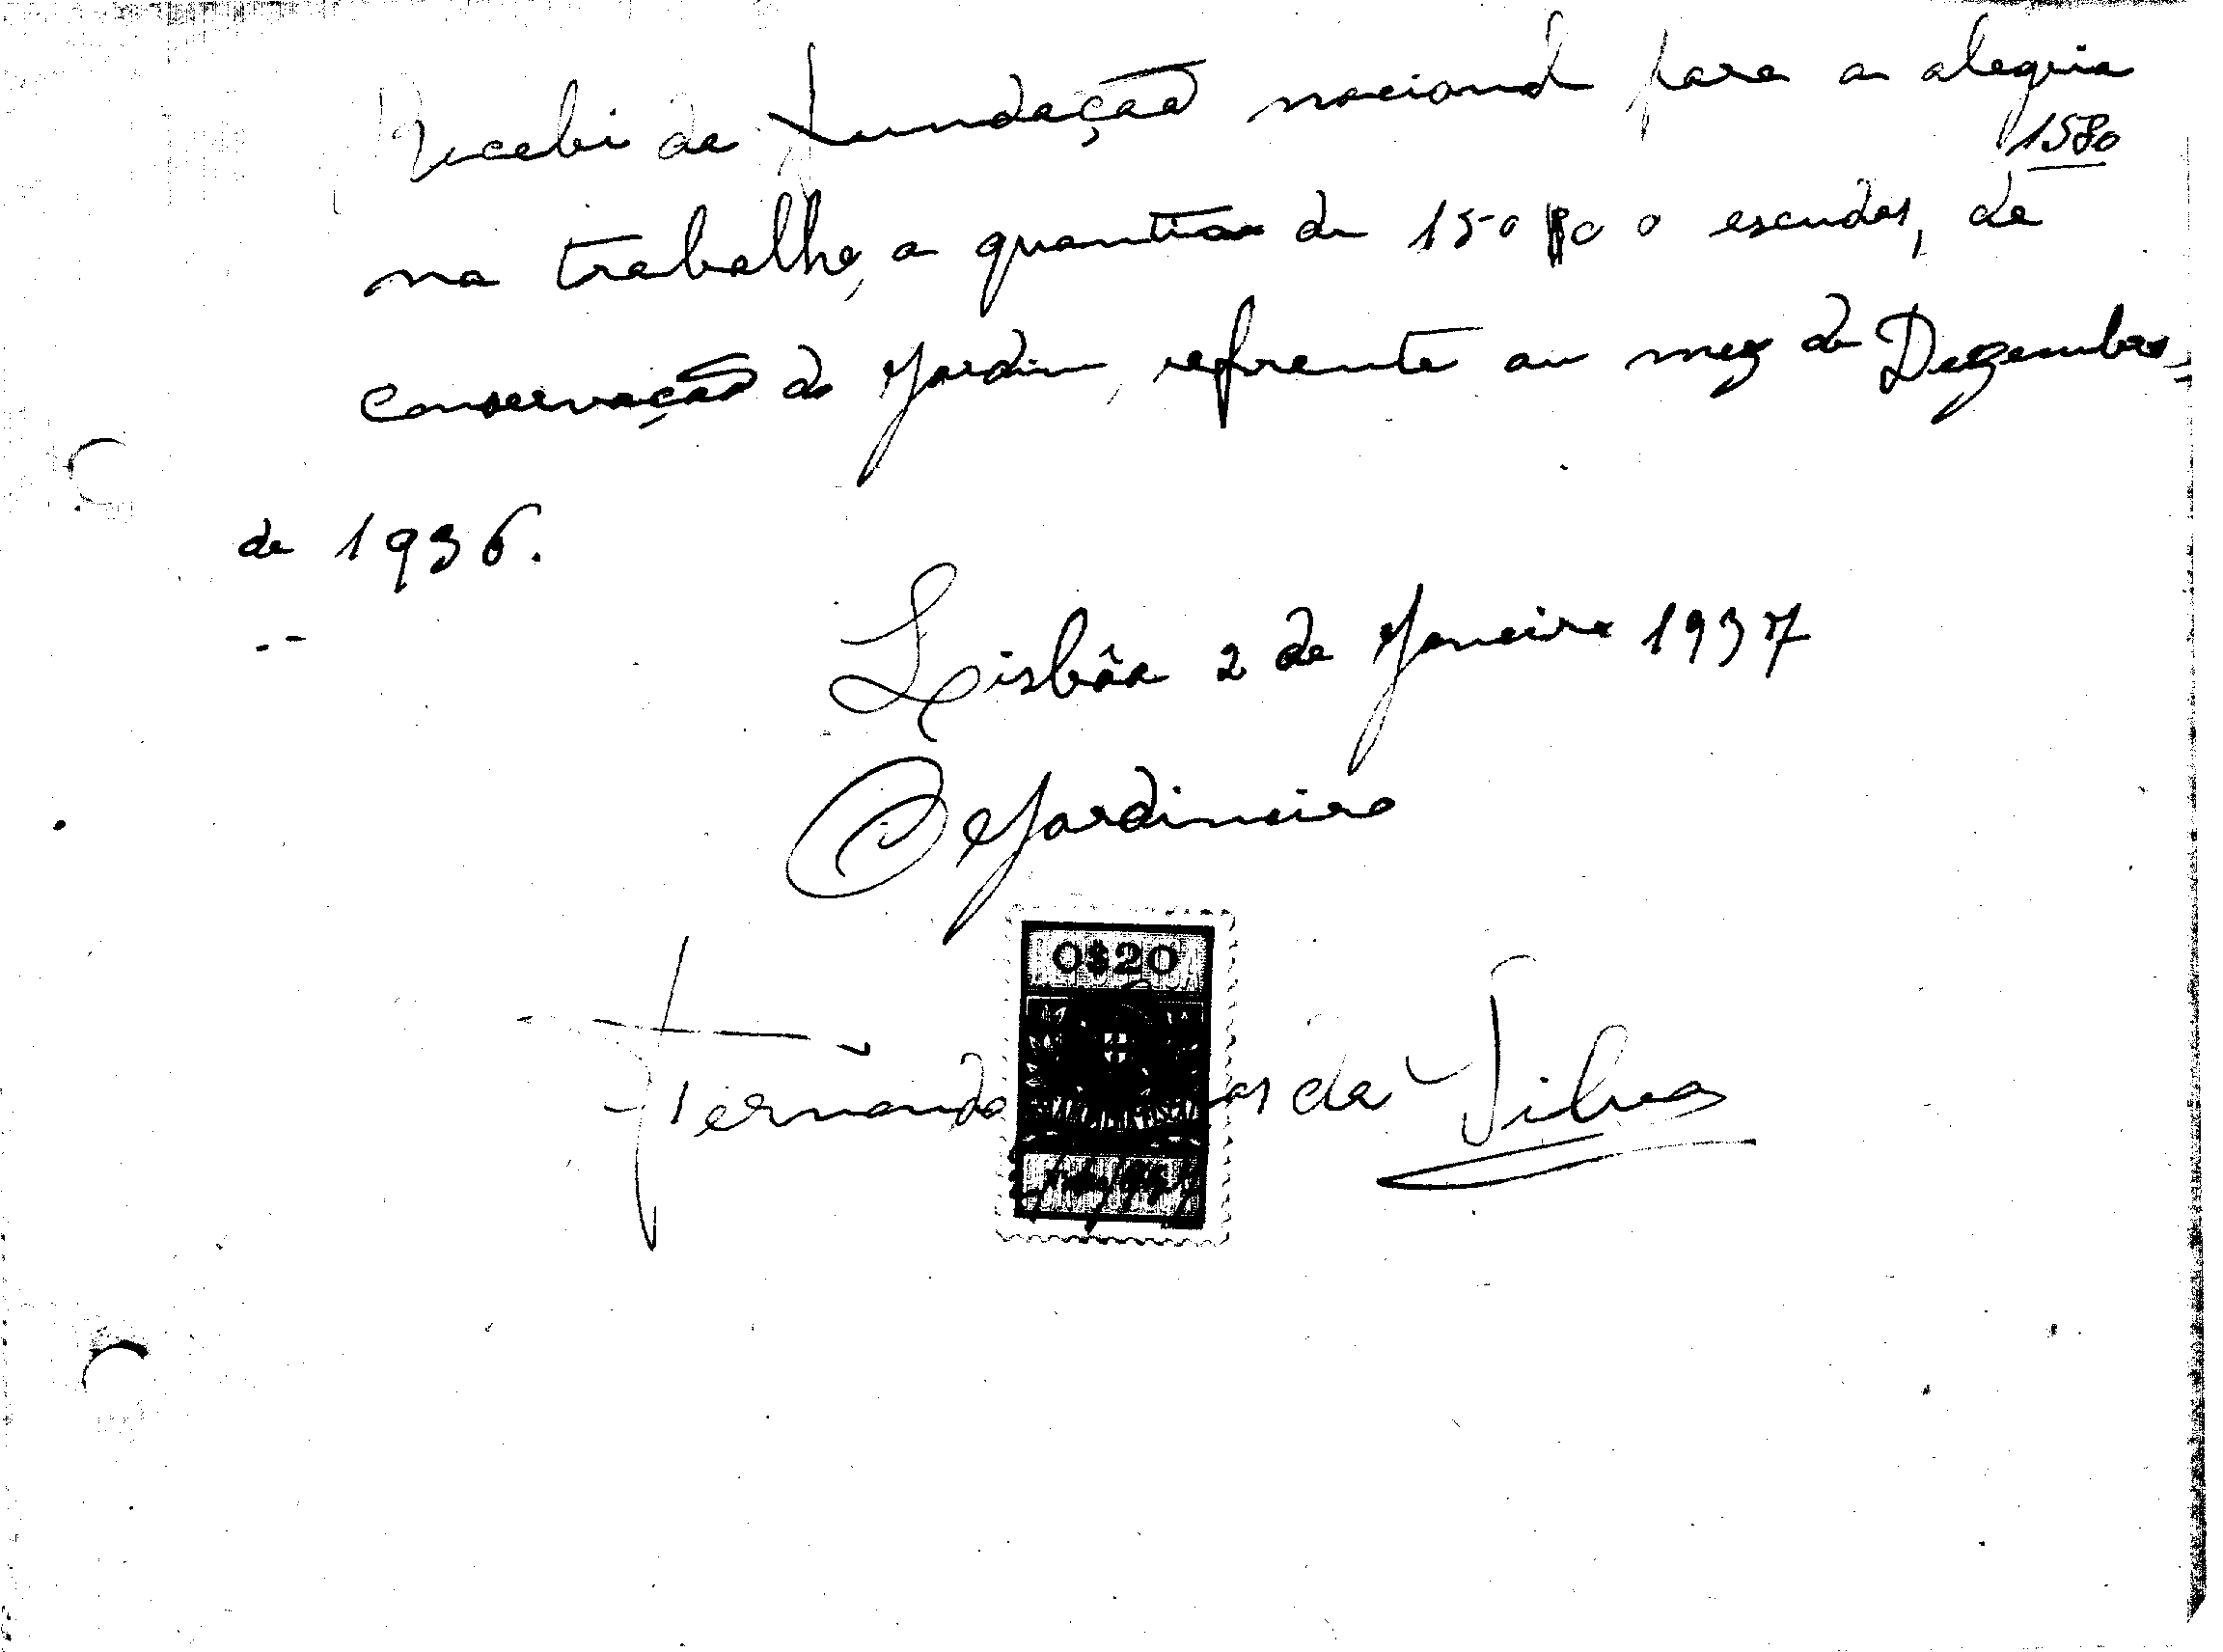 Recebi da Fundação nacional para a alegria
1580
no trabalho, a quantia de 150$00 escudos, de
conservação do Jardim, refrente au mez de Dezembro
de 1936.
Lisbôa 2 de Janeiro 1937
O Jardineiro
0$20
Fernando da Silva